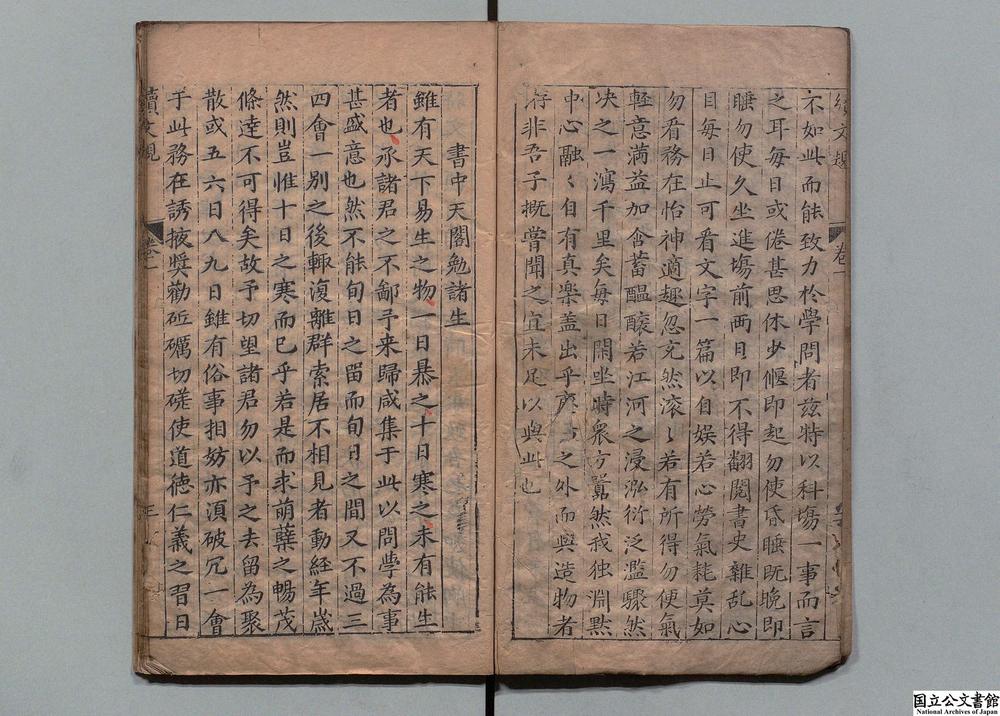 續文規
卷一
不如此而能致力於學問者茲特以科場一事而言
之耳每日或倦甚思休少偃即起勿使昏睡既晚即
睡勿使久坐進場前兩日即不得翻閱書史雜乱心
目每日止可看文字一篇以自娱若心勞氣耗莫如
勿看務在怡神適趣忽充然滚〻若有所得勿使氣
輕意滿益加含蓄醞釀若江河之浸泓衍泛濫驟然
决之一瀉千里矣每日閑坐時衆方囂然我独淵黙
中心融〻自有真楽盖出乎塵垢之外而與造物者
游非吾子概嘗聞之宜未足以與此也
書中天閣勉諸生
雖有天下易生之物一日暴之十日寒之未有能生
者也承諸君之不鄙予来歸咸集于此以問學為事
甚盛意也然不能旬日之留而旬日之間又不過三
四會一別之後輒復離群索居不相見者動経年歳
然則豈惟十日之寒而已乎若是而求萌蘖之暢茂
條達不可得矣故予切望諸君勿以予之去留為聚
散或五六日八九日雖有俗事相妨亦須破冗一會
于此務在誘掖奬勸砥礪切磋使道徳仁義之習日
續文規
卷一
三
国立公文書館
National Archives of Japan